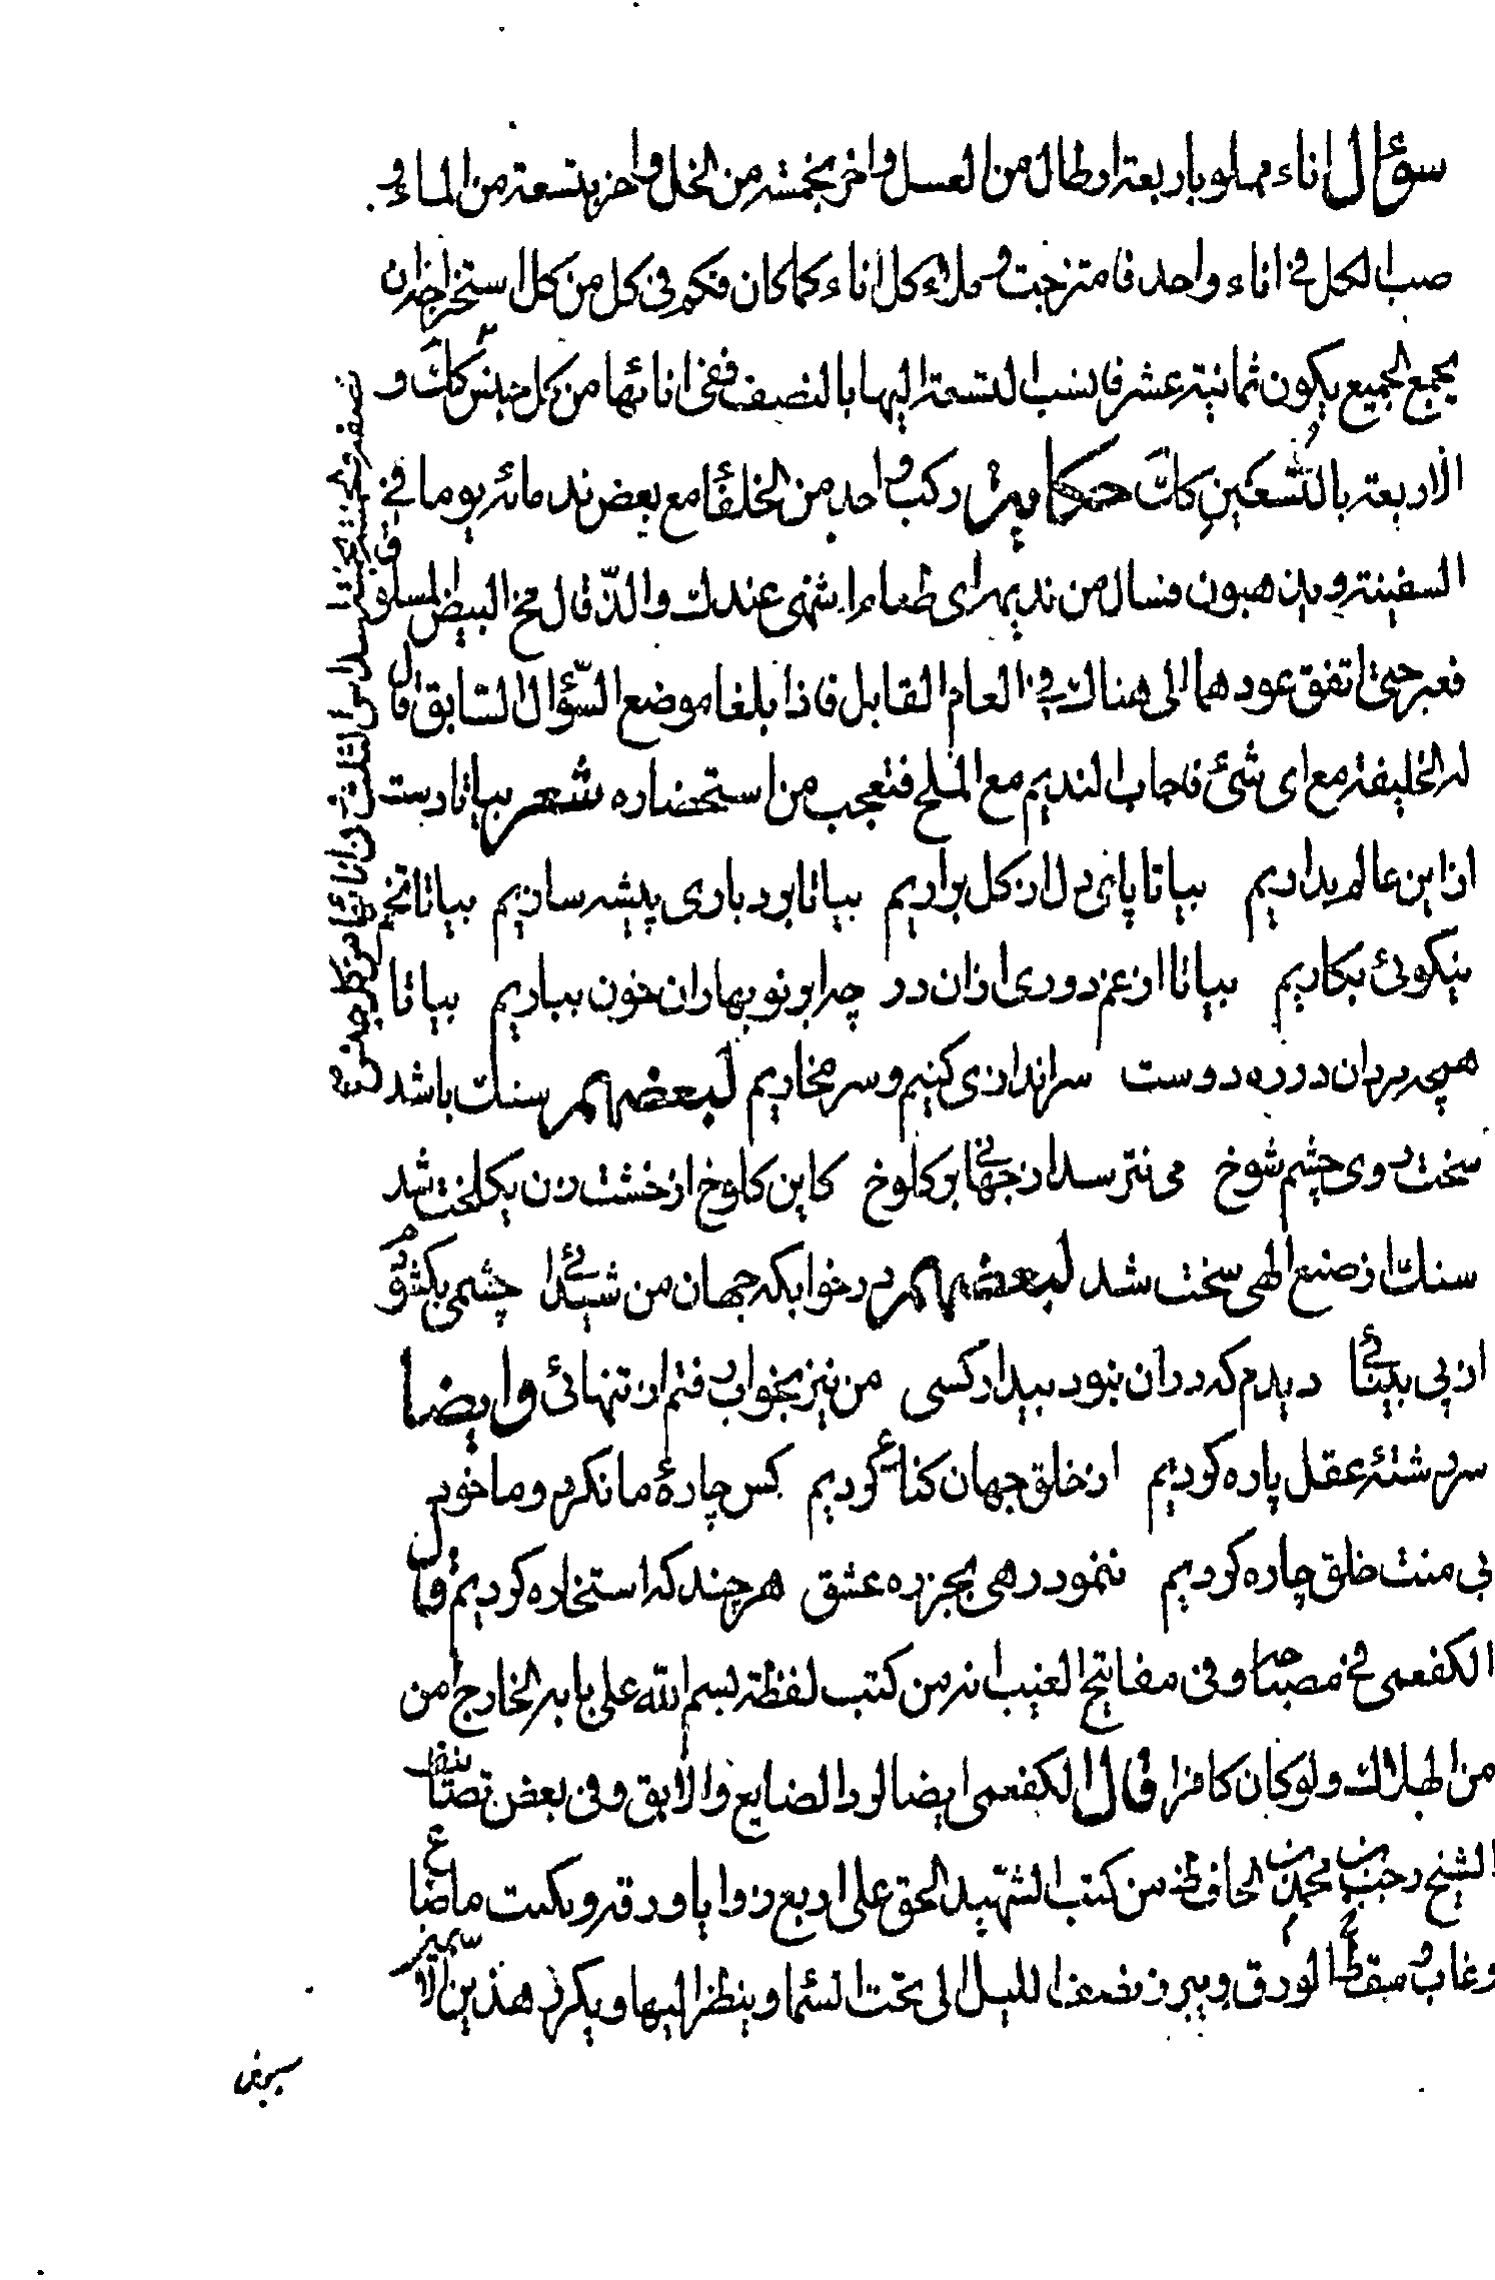 سؤال اناء مملو باربعة ارطال من العسل واخر بخمسة من الخل واخر بتسعة من الماء و
صب الكل في اناء واحد فامتزجت و ملاء كل اناء كما كان فكم في كل من كل استخراجه ان
يجمع الجميع يكون ثمانية عشر فانسب التسعة اليها بالنصف ففي انائها من كل جنس كك و
الاربعة بالتسعين كك حكاية ركب واحد من الخلفا مع بعض ندمائه يوما في
السفينة ويذهبون فسال من نديمه اى طعام اشهى عندك والذ قال مخ البيض المسلوق
فعبر حتى اتفق عودهما الى هناك في العام القابل فاذا بلغا موضع السؤال السابق قال
له الخليفة مع اى شئ فاجاب النديم مع الملح فتعجب من استحضاره شعر بيا تا دست
از اين عالم بداريم بيا تا پاى دل از كل براريم بيا تا بردبارى پيشه سازيم بيا تا تخم
نيكوئ بكاريم بيا تا از غم دورى ازان در چه ابر نوبهاران خون بباريم بيا تا
همچه مردان در ره دوست سراندازى كنيم و سر نخاريم لبعضهم سنك باشد
سخت روى چشم شوخ مى نترسد از جهانى پر كلوخ كاين كلوخ از خشت زن يكلخت شد
سنك از صنع الهى سخت شد لبعضهم در خوابكه جهان من شيدائى چشمى بكشودم
از پى بينائى ديدم كه دران نبود بيدار كسى من نيز بخواب رفتم از تنهائى وايضا
سر رشته عقل پاره كرديم از خلق جهان كناره كرديم كس چاره ما نكرد و ما خود
بى منت خلق چاره كرديم ننمود رهى بجز ره عشق هر چند كه استخاره كرديم قال
الكفعمى في مصباحه وفى مفاتيح الغيب انه من كتب لفظة بسم الله على بابه الخارج امن
من الهلاك ولو كان كافرا قال الكفعمى ايضا لرد الضايع والابق وفى بعض تصانيف
الشيخ رجب بن محمد بن الحافظ من كتب الشهيد الحق على اربع زوايا ورقة ويكتب ما ضاع
وغاب وسط الورق ويبرز نصف الليل الى تحت السما وينظر اليها ويكرر هذين الاسمين
سبعين